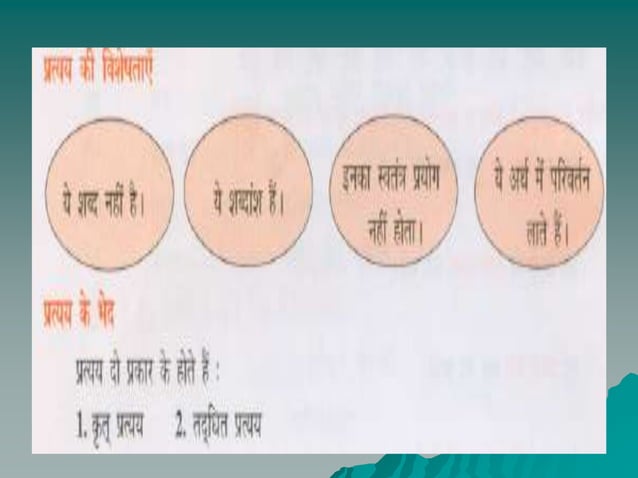 प्रत्यय की विशेषताएँ
ये शब्द नहीं है।
ये शब्दांश हैं।
इनका स्वतंत्र प्रयोग
नहीं होता।
ये अर्थ में परिवर्तन
लाते हैं।
प्रत्यय के भेद
प्रत्यय दो प्रकार के होते हैं :
1. कृत् प्रत्यय 2. तद्धित प्रत्यय